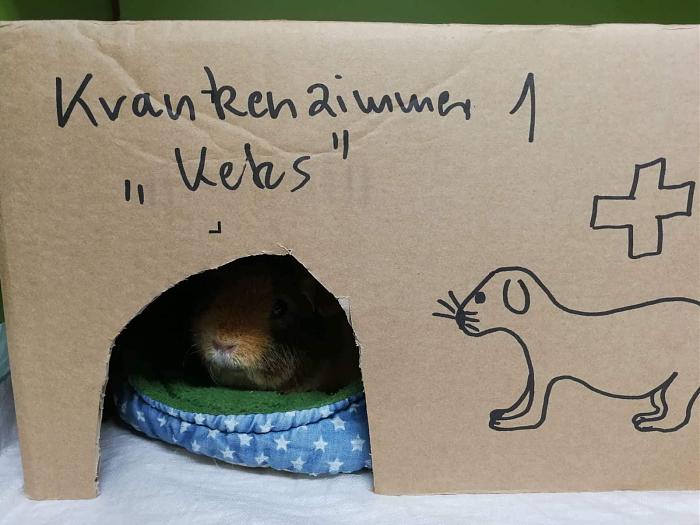 Krankenzimmer 1
"Keks"